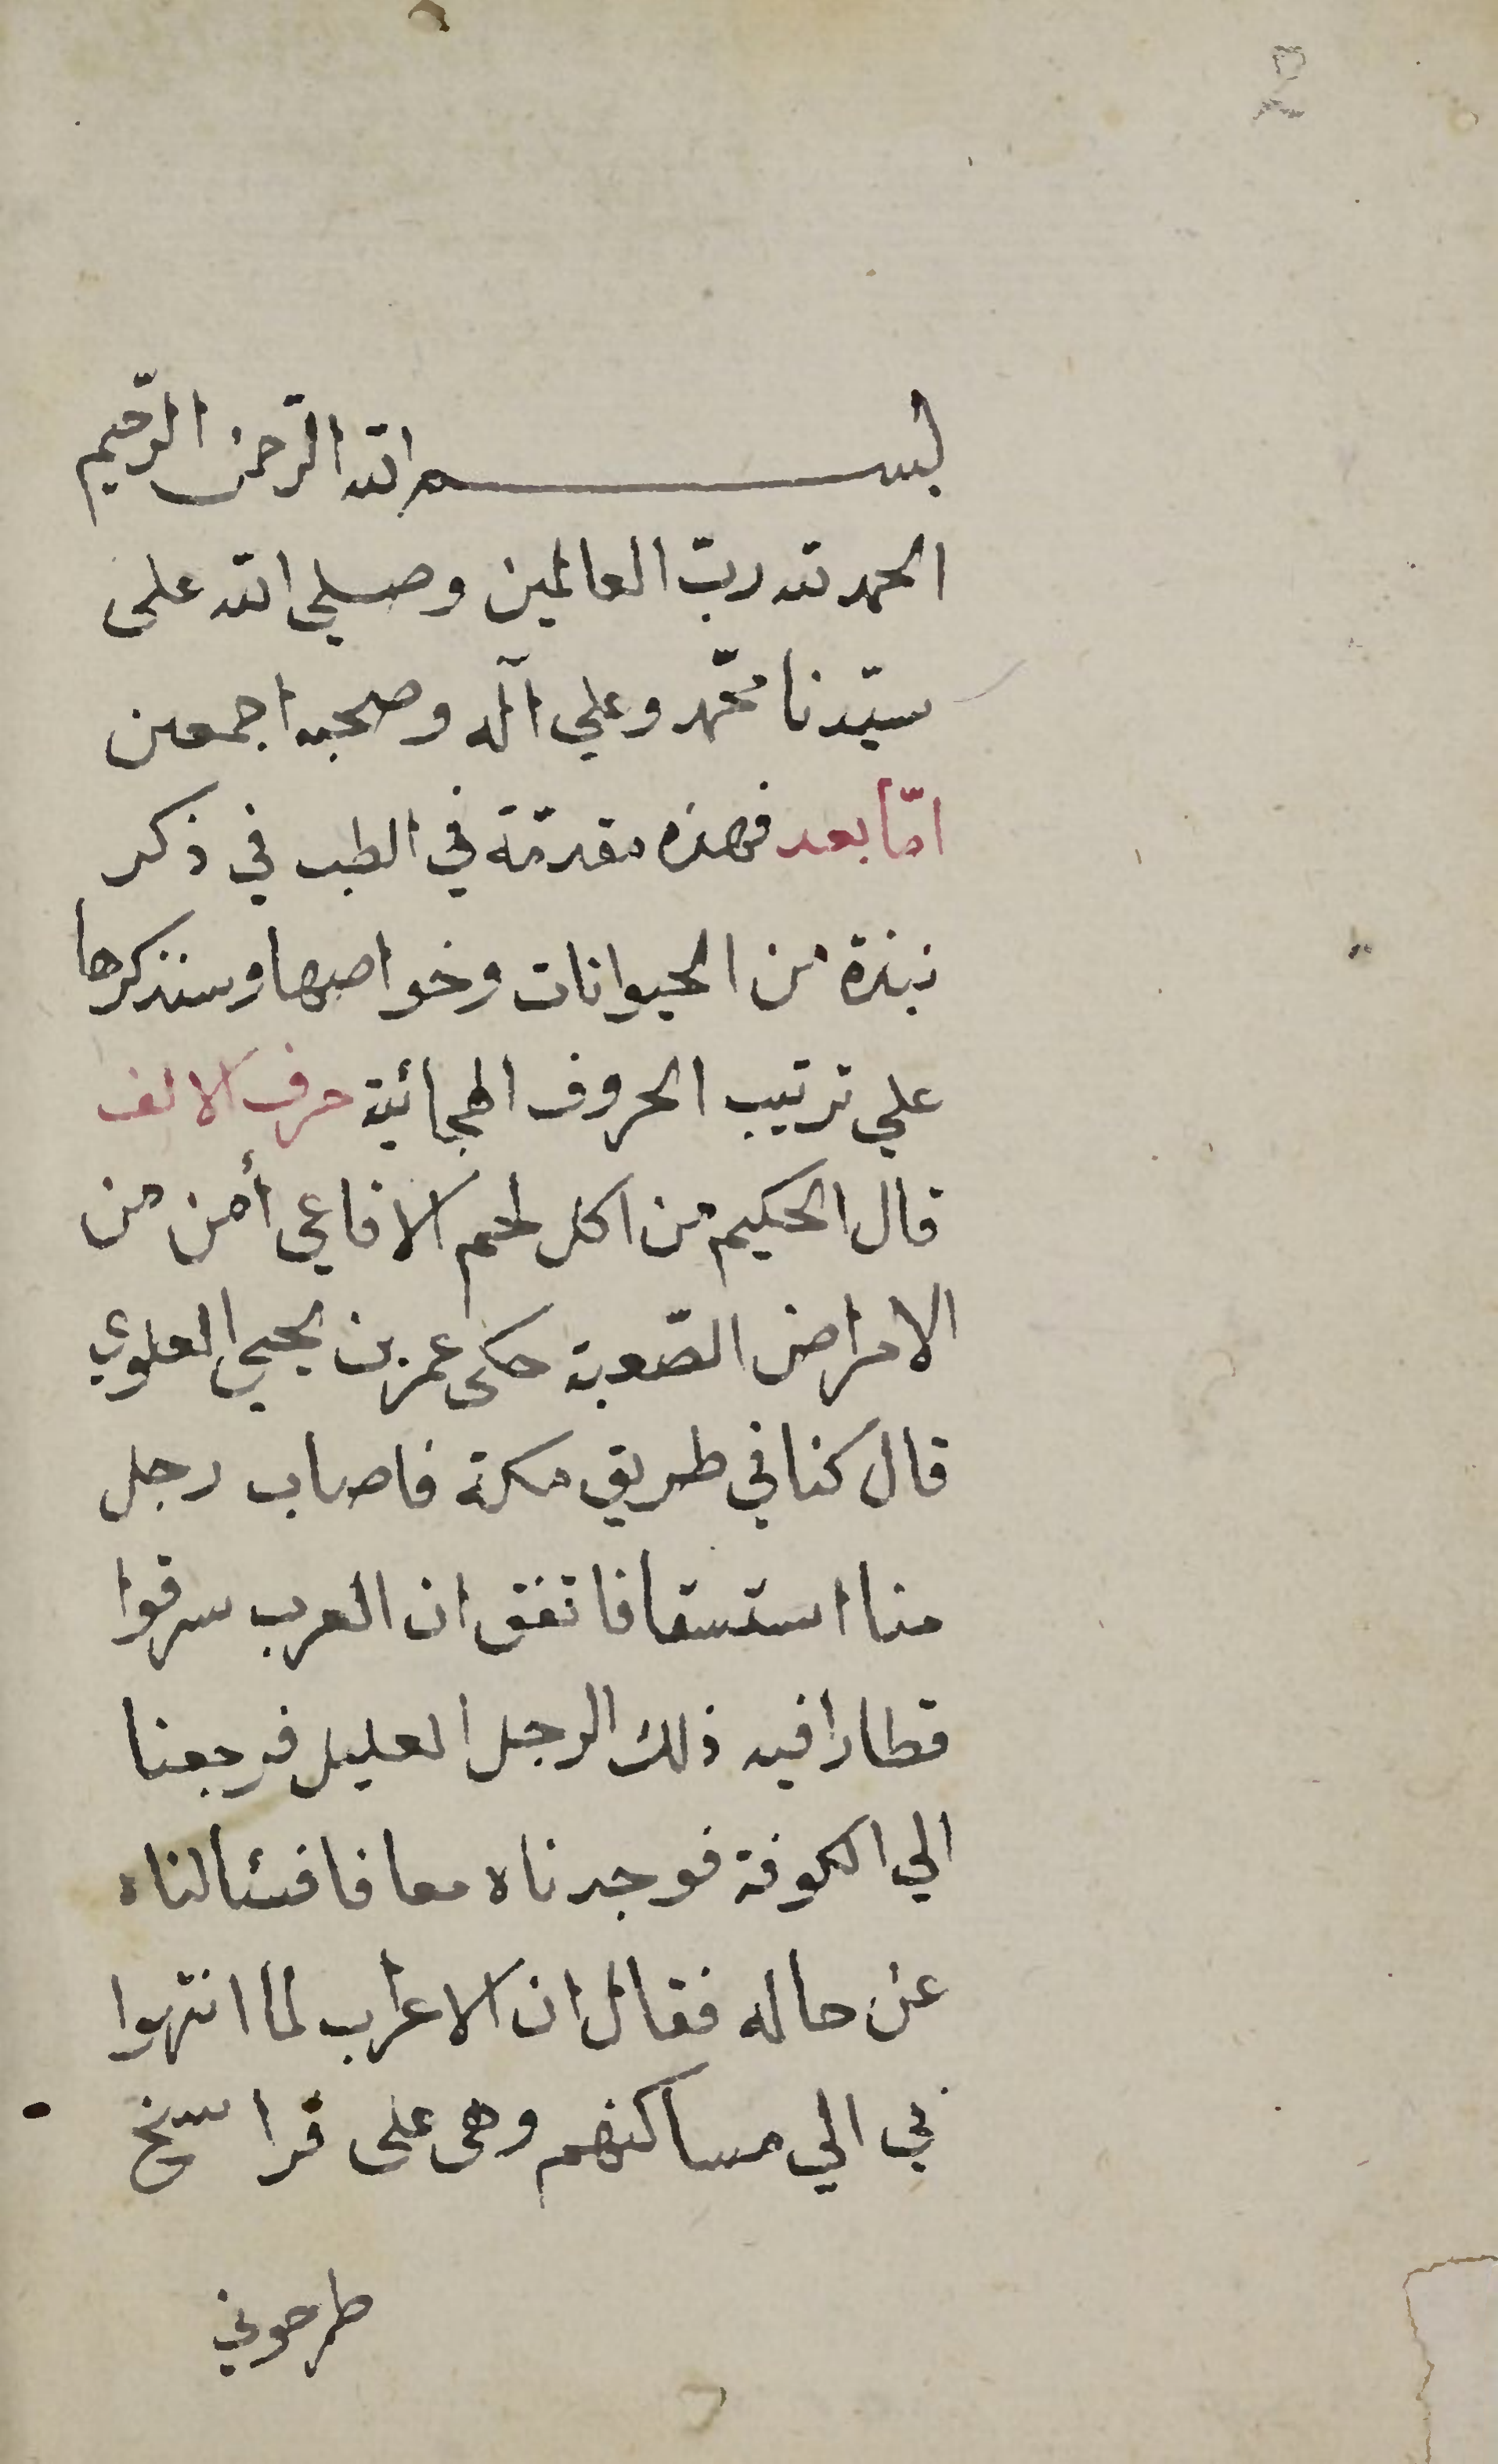 2
بسم الله الرّحمن الرّحيم
الحمد لله ربّ العالمين وصلي الله على
سيّدنا محمّد وعلي آله وصحبه اجمعين
امّا بعد فهذه مقدمّة في الطب في ذكر
نبذة من الحيوانات وخواصها وسنذكرها
علي ترتيب الحروف الهجائية حرف الالف
قال الحكيم من اكل لحم الافاعي أمن من
الامراض الصّعبة حكى عمر بن يحيي العلوي
قال كنا في طريق مكة فاصاب رجل
منا استسقا فاتفق ان العرب سرقوا
قطارا فيه ذلك الرجل العليل فرجعنا
الي الكوفة فوجدناه معافا فسئالناه
عن حاله فقال ان الاعراب لما انتهوا
بي الي مساكنهم وهى على فراسخ
طرحوني